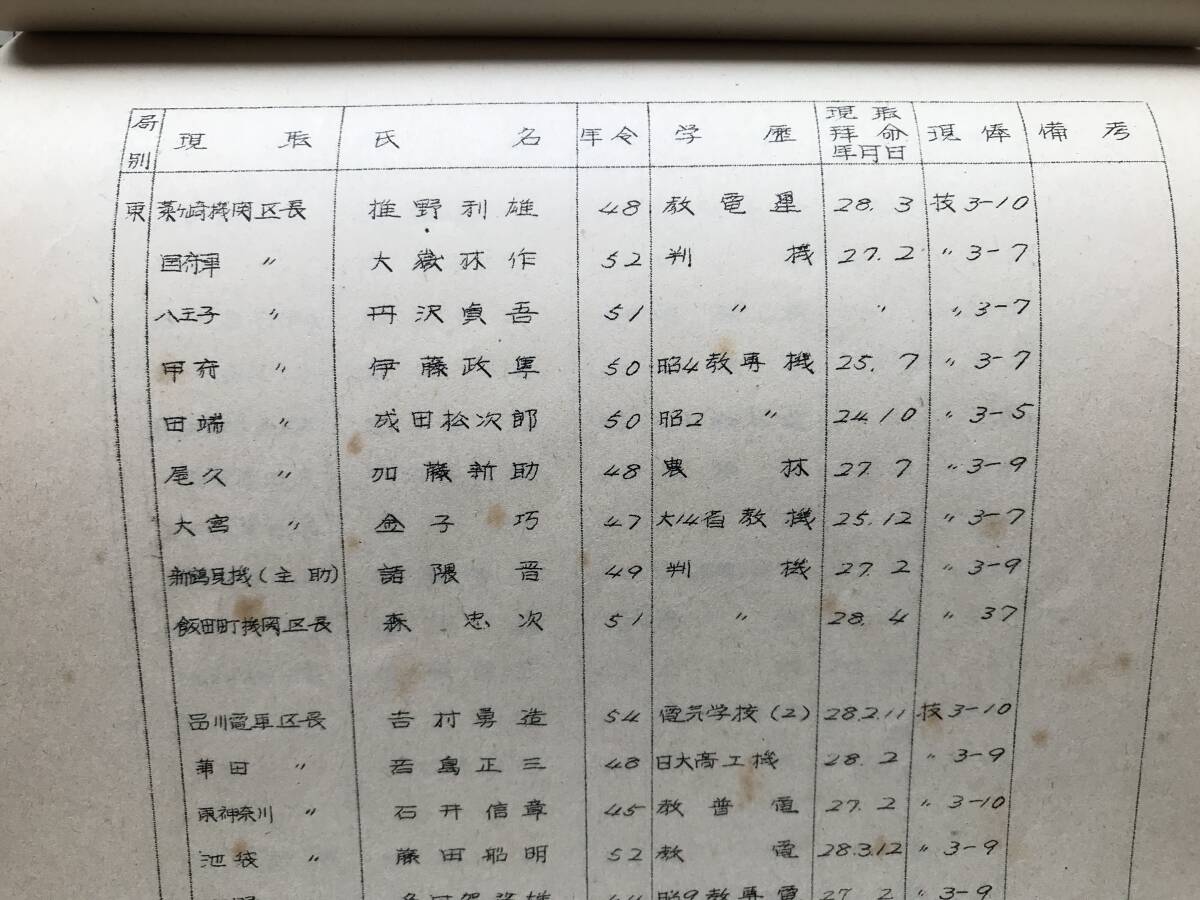 局別 現職 氏名 年令 学歴 現職拝命年月日 現俸 備考
東 茅ケ崎機関区長 椎野利雄 48 教電星 28.3 技3-10
国府津 〃 大嶽林作 52 判機 27.2 〃3-7
八王子 〃 丹沢貞吾 51 〃 〃 〃3-7
甲府 〃 伊藤政隼 50 昭4教専機 25.7 〃3-7
田端 〃 成田松次郎 50 昭2 〃 24.10 〃3-5
尾久 〃 加藤新助 48 農林 27.7 〃3-9
大宮 〃 金子巧 47 大14省教機 25.12 〃3-7
新鶴見機(主助) 諸隈晋 49 判機 27.2 〃3-9
飯田町機関区長 森忠次 51 〃 28.4 〃37
品川電車区長 吉村勇造 54 電気学校(2) 28.2.11 技3-10
蒲田 〃 島正三 48 日大高工機 28.2 〃3-9
東神奈川 〃 石井信章 45 教普電 27.2 〃3-10
池袋 〃 藤田船明 52 教電 28.3.12 〃3-9
昭9教専電 27.2 〃3-9